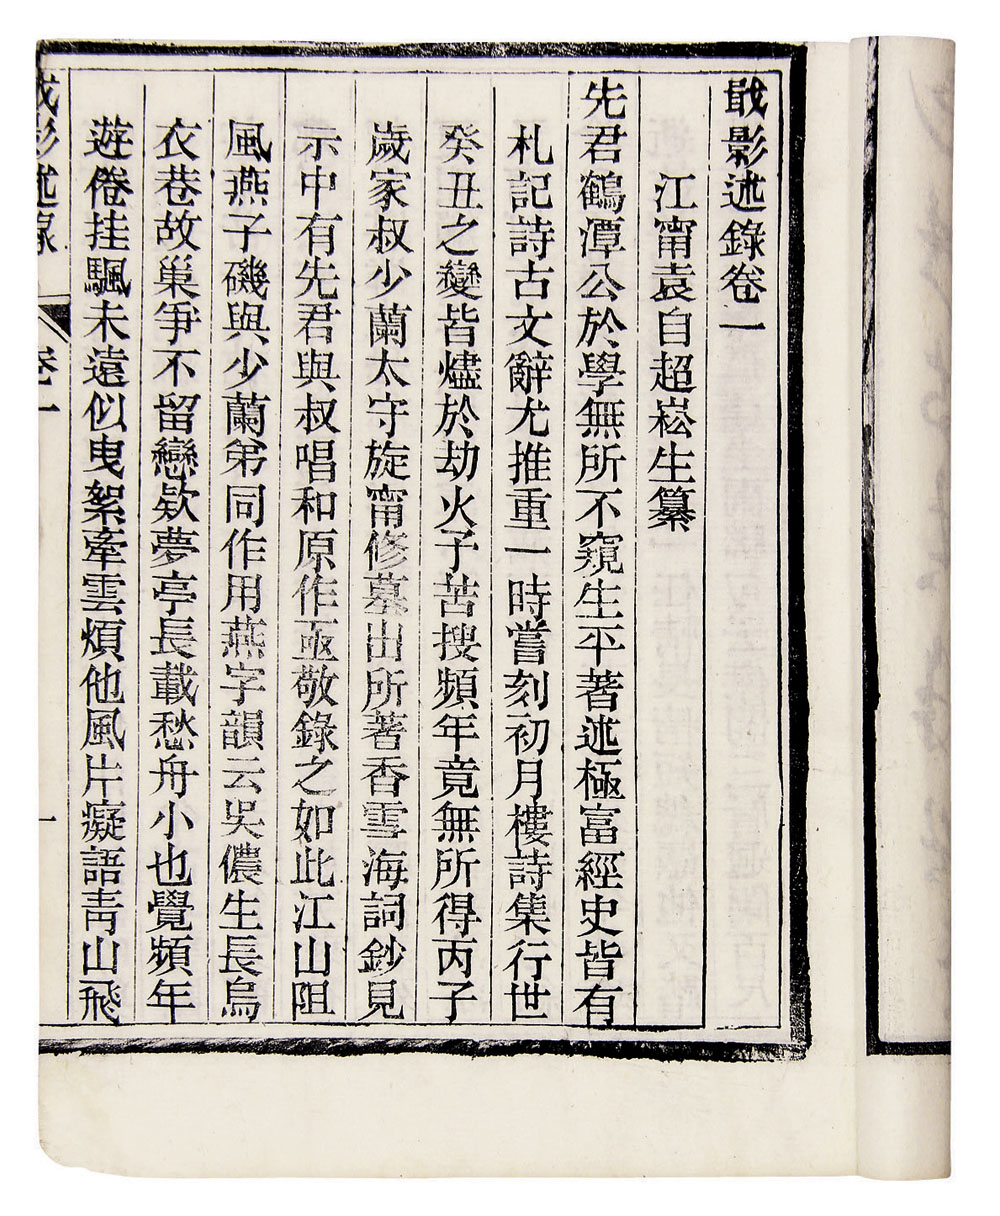 戢影述錄卷一
江甯袁自超崧生纂
先君鶴潭公於學無所不窺生平著述極富經史皆有
札記詩古文辭尤推重一時嘗刻初月樓詩集行世
癸丑之變皆燼於劫火子苦搜頻年竟無所得丙子
歲家叔少蘭太守旋甯修墓出所著香雪海詞鈔見
示中有先君與叔唱和原作亟敬錄之如此江山阻
風燕子磯與少蘭弟同作用燕字韻云吳儂生長烏
衣巷故巢爭不留戀欵夢亭長載愁舟小也覺頻年
遊倦挂颿未遠似曳絮牽雲煩他風片癡語靑山飛
卷一
一